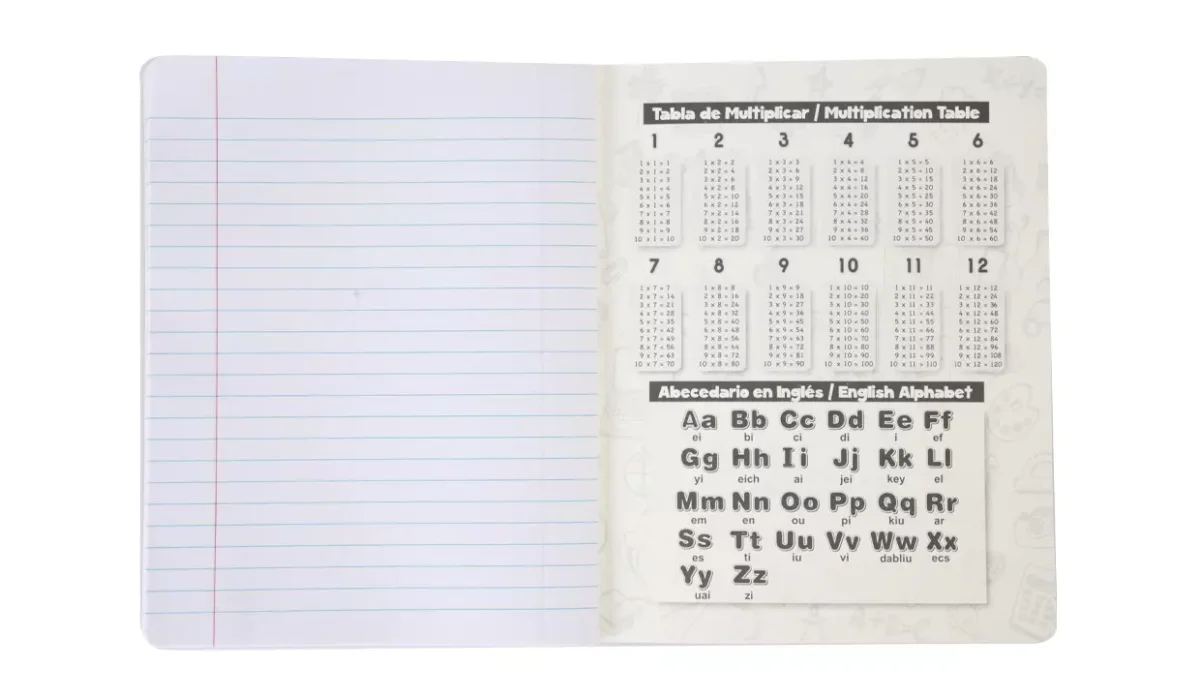 Tabla de Multiplicar / Multiplication Table
1 2 3 4 5 6
1 x 1 = 1 1 x 2 = 2 1 x 3 = 3 1 x 4 = 4 1 x 5 = 5 1 x 6 = 6
2 x 1 = 2 2 x 2 = 4 2 x 3 = 6 2 x 4 = 8 2 x 5 = 10 2 x 6 = 12
3 x 1 = 3 3 x 2 = 6 3 x 3 = 9 3 x 4 = 12 3 x 5 = 15 3 x 6 = 18
4 x 1 = 4 4 x 2 = 8 4 x 3 = 12 4 x 4 = 16 4 x 5 = 20 4 x 6 = 24
5 x 1 = 5 5 x 2 = 10 5 x 3 = 15 5 x 4 = 20 5 x 5 = 25 5 x 6 = 30
6 x 1 = 6 6 x 2 = 12 6 x 3 = 18 6 x 4 = 24 6 x 5 = 30 6 x 6 = 36
7 x 1 = 7 7 x 2 = 14 7 x 3 = 21 7 x 4 = 28 7 x 5 = 35 7 x 6 = 42
8 x 1 = 8 8 x 2 = 16 8 x 3 = 24 8 x 4 = 32 8 x 5 = 40 8 x 6 = 48
9 x 1 = 9 9 x 2 = 18 9 x 3 = 27 9 x 4 = 36 9 x 5 = 45 9 x 6 = 54
10 x 1 = 10 10 x 2 = 20 10 x 3 = 30 10 x 4 = 40 10 x 5 = 50 10 x 6 = 60
7 8 9 10 11 12
1 x 7 = 7 1 x 8 = 8 1 x 9 = 9 1 x 10 = 10 1 x 11 = 11 1 x 12 = 12
2 x 7 = 14 2 x 8 = 16 2 x 9 = 18 2 x 10 = 20 2 x 11 = 22 2 x 12 = 24
3 x 7 = 21 3 x 8 = 24 3 x 9 = 27 3 x 10 = 30 3 x 11 = 33 3 x 12 = 36
4 x 7 = 28 4 x 8 = 32 4 x 9 = 36 4 x 10 = 40 4 x 11 = 44 4 x 12 = 48
5 x 7 = 35 5 x 8 = 40 5 x 9 = 45 5 x 10 = 50 5 x 11 = 55 5 x 12 = 60
6 x 7 = 42 6 x 8 = 48 6 x 9 = 54 6 x 10 = 60 6 x 11 = 66 6 x 12 = 72
7 x 7 = 49 7 x 8 = 56 7 x 9 = 63 7 x 10 = 70 7 x 11 = 77 7 x 12 = 84
8 x 7 = 56 8 x 8 = 64 8 x 9 = 72 8 x 10 = 80 8 x 11 = 88 8 x 12 = 96
9 x 7 = 63 9 x 8 = 72 9 x 9 = 81 9 x 10 = 90 9 x 11 = 99 9 x 12 = 108
10 x 7 = 70 10 x 8 = 80 10 x 9 = 90 10 x 10 = 100 10 x 11 = 110 10 x 12 = 120
Abecedario en Inglés / English Alphabet
Aa Bb Cc Dd Ee Ff
ei bi ci di i ef
Gg Hh Ii Jj Kk Ll
yi eich ai jei key el
Mm Nn Oo Pp Qq Rr
em en ou pi kiu ar
Ss Tt Uu Vv Ww Xx
es ti iu vi dabliu ecs
Yy Zz
uai zi